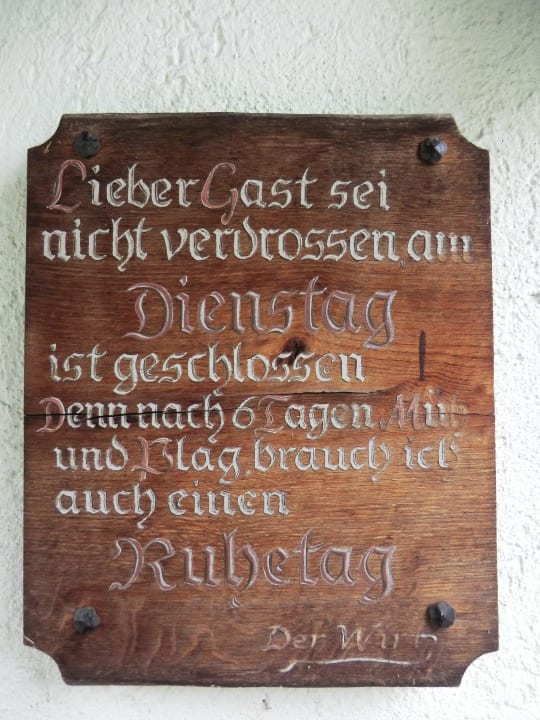 Lieber Gast sei
nicht verdrossen, am
Dienstag
ist geschlossen
Denn nach 6 Tagen Müh
und Plag, brauch ich
auch einen
Ruhetag
Der Wirt